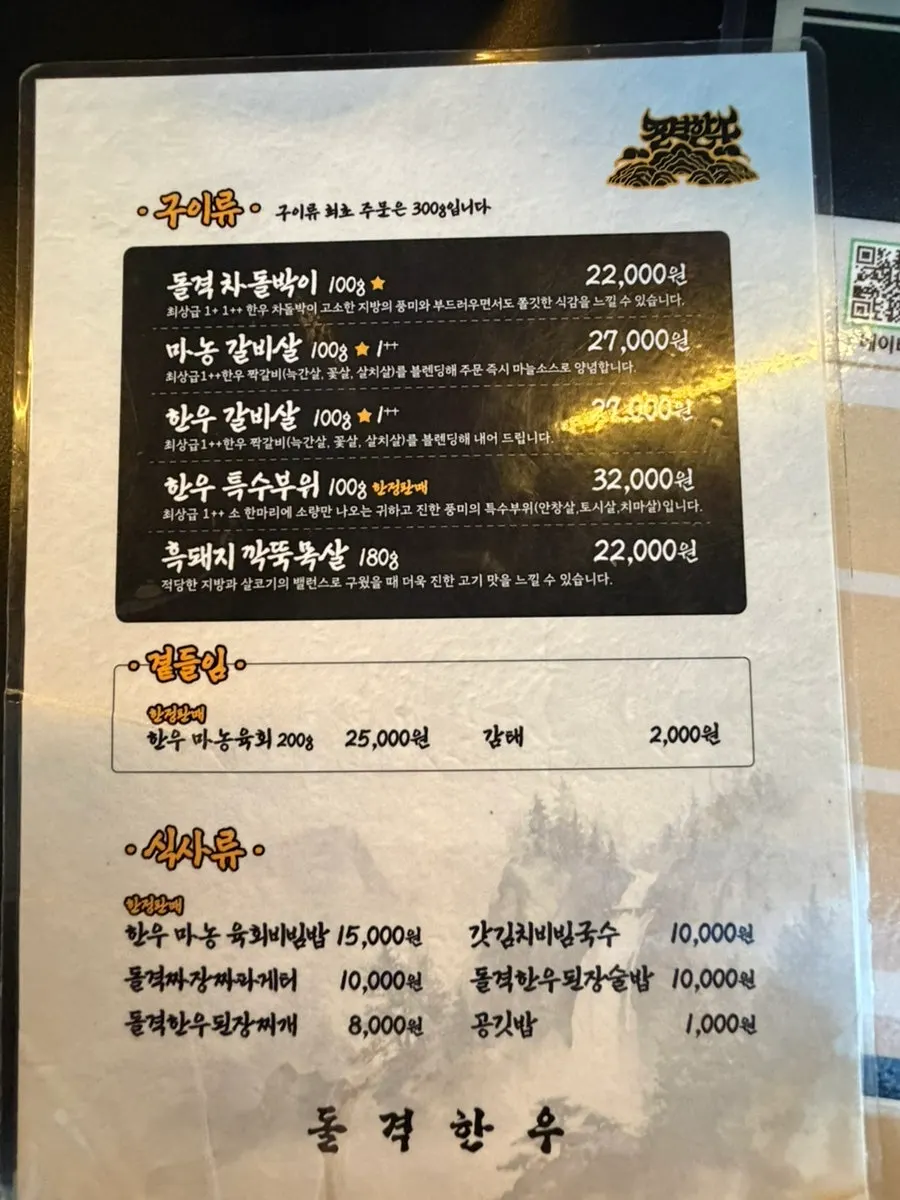 돌격한우
·구이류· 구이류 최초 주문은 300g입니다
돌격 차돌박이 100g ★ 22,000원
최상급 1+ 1++ 한우 차돌박이 고소한 지방의 풍미와 부드러우면서도 쫄깃한 식감을 느낄 수 있습니다.
마농 갈비살 100g ★ 1++ 27,000원
최상급1++한우 짝갈비(늑간살, 꽃살, 살치살)를 블렌딩해 주문 즉시 마늘소스로 양념합니다.
한우 갈비살 100g ★ 1++ 27,000원
최상급1++한우 짝갈비(늑간살, 꽃살, 살치살)를 블렌딩해 내어 드립니다.
한우 특수부위 100g 한정판매 32,000원
최상급 1++ 소 한마리에 소량만 나오는 귀하고 진한 풍미의 특수부위(안창살,토시살,치마살)입니다.
흑돼지 깍뚝목살 180g 22,000원
적당한 지방과 살코기의 밸런스로 구웠을 때 더욱 진한 고기 맛을 느낄 수 있습니다.
·곁들임·
한정판매
한우 마농육회 200g 25,000원 감태 2,000원
·식사류·
한정판매
한우 마농 육회비빔밥 15,000원 갓김치비빔국수 10,000원
돌격짜장짜파게터 10,000원 돌격한우된장술밥 10,000원
돌격한우된장찌개 8,000원 공깃밥 1,000원
돌격한우